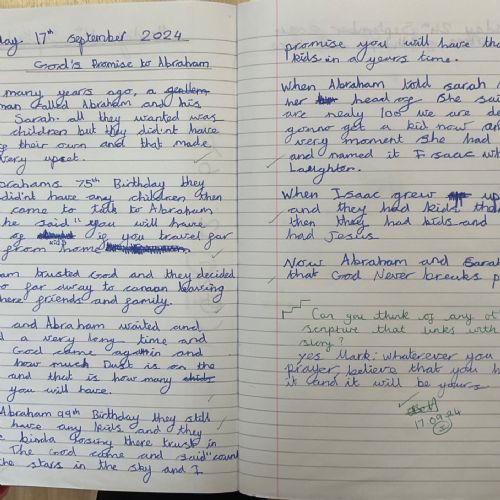 day 17th September 2024
God's Promise to Abraham
many years ago, a gentlem
man called Abraham and his
Sarah. all they wanted was
children but they did'nt have
their own and that made
very upset.
brahams 75th Birthday they
did'nt have any children then
come to talk to Abraham
he said "you will have
of if you travel far
from home
am trusted God and they decided
o far away to canaan leaving
there friends and family.
and Abraham waited and
d a very long time and
God came again and
how much Dust is on the
and that is how many
you will have.
Abraham 99th Birthday they still
have any kids and they
kinda losing there trust in
The God come and said "coun
the stars in the sky and I
promise you will have tha
kids in a years time.
When Abraham told sarah
her head of She sai
are nealy 100 we are
gonno get a kid now an
very moment she had
and named it Isaac wh
Laughter.
When Isaac grew up
and they had kids tha
then they had kids and
had Jesus
Now Abraham and Sarah
that God Never breaks p
Can you think of any ot
scripture that links with
story?
yes Mark: whatever you
prayer, believe that you h
it and it will be yours
17.09.24